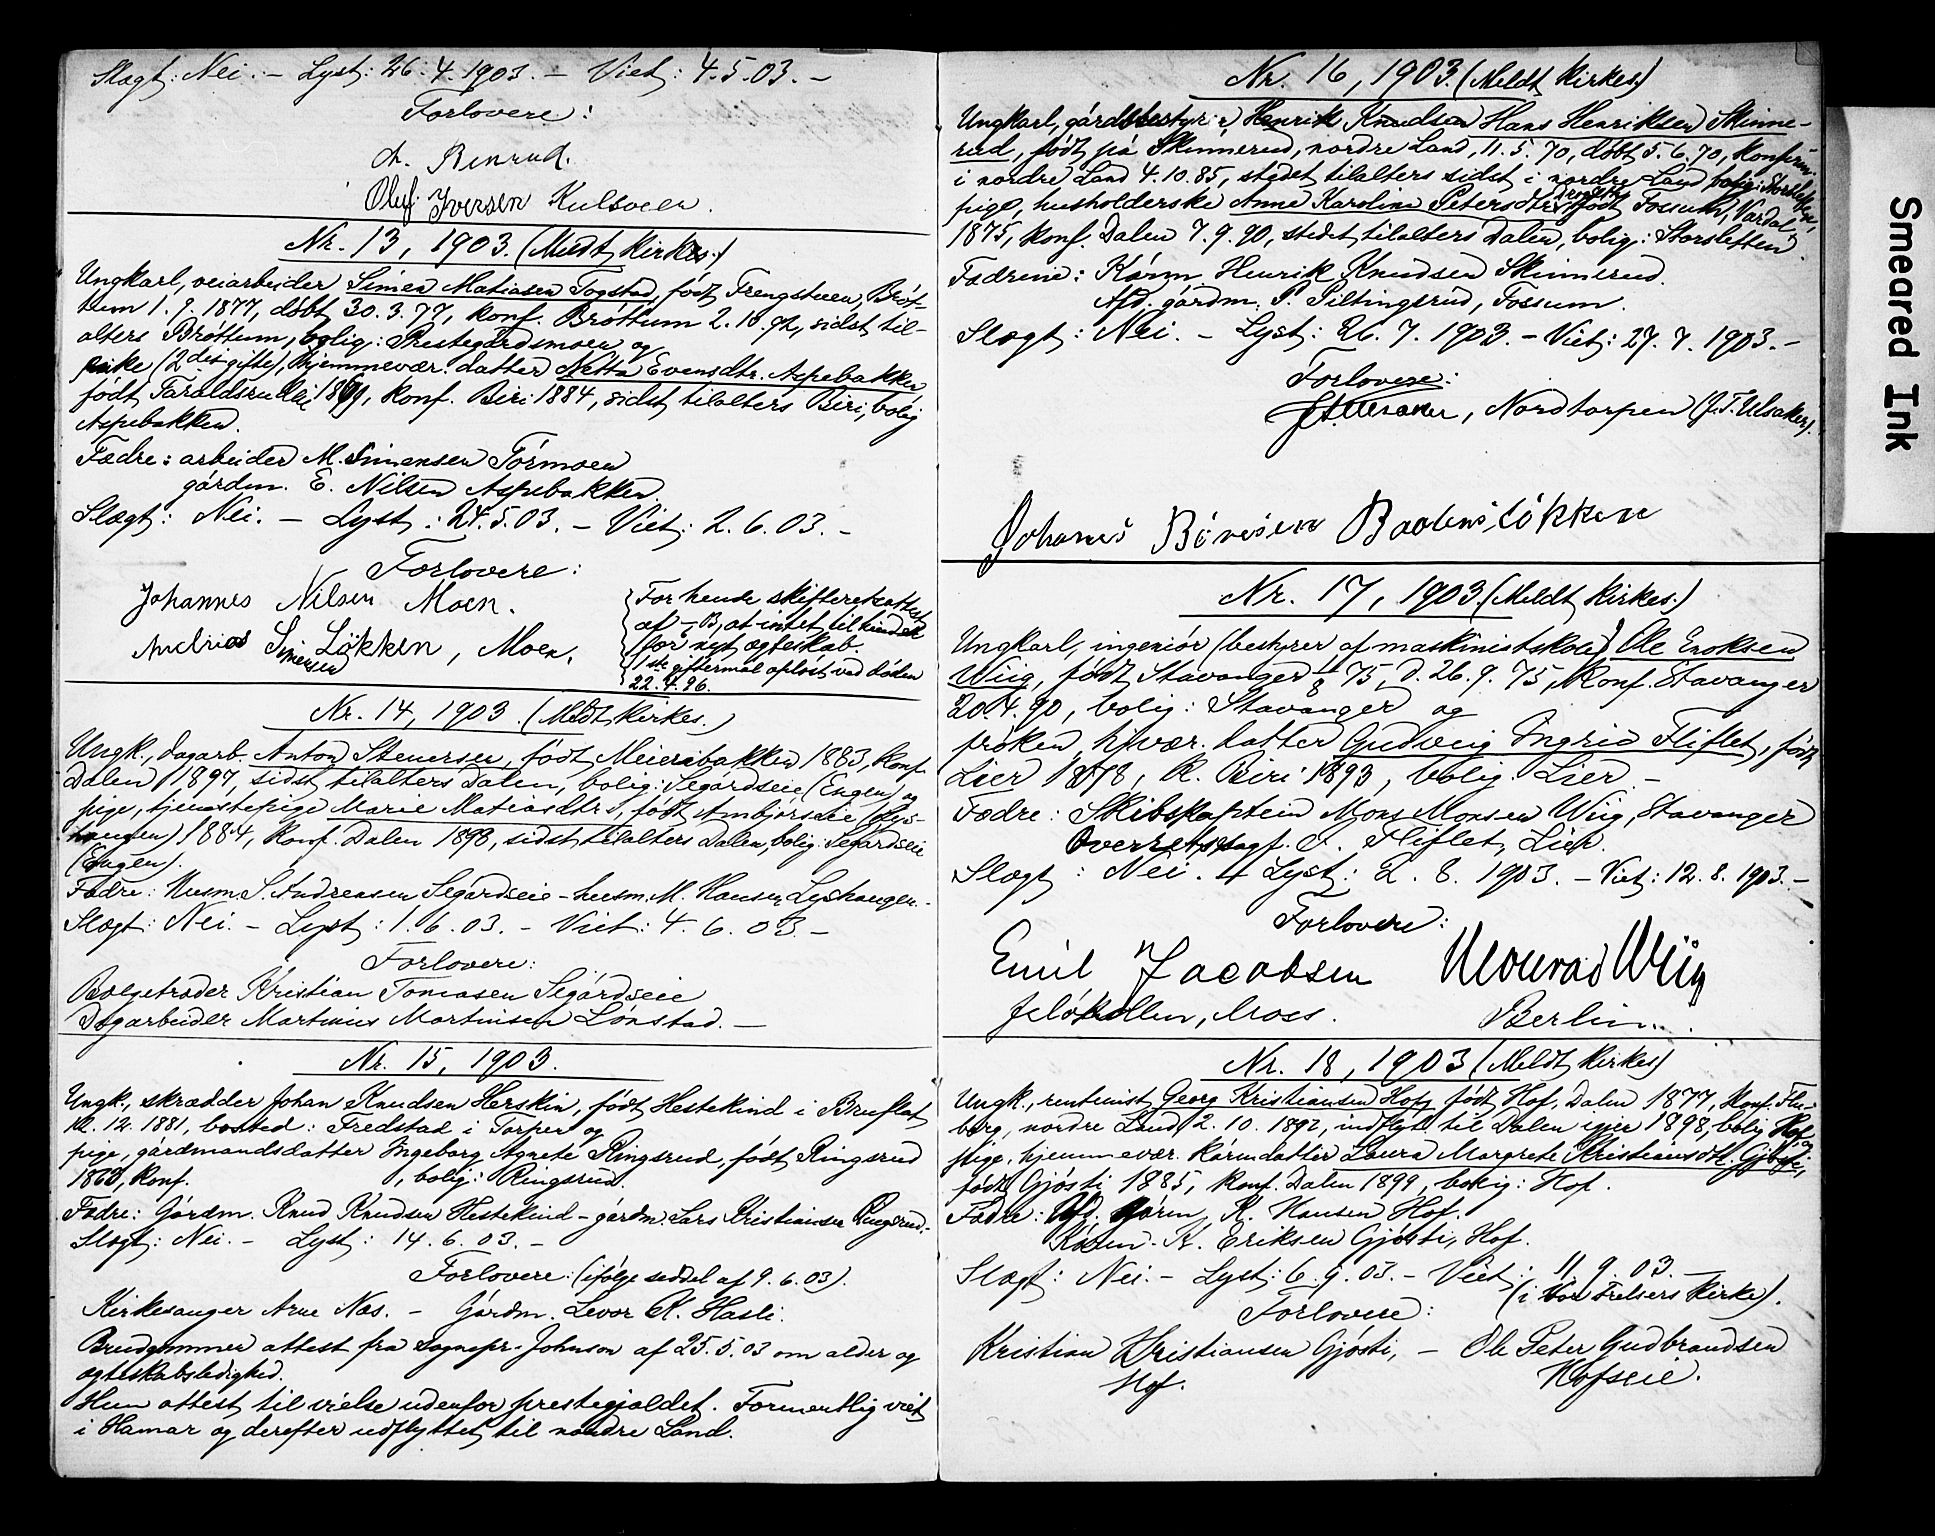 Slægt: Nei. – Lyst: 26.4.1903. – Viet: 4.5.03. –
Forlovere:
Oluf Iversen Kulsveen.
Nr. 13, 1903. (Meldt Kirkes.)
Ungkarl, veiarbeider Simen Matiasen Togstad, født Frengstuen, Brøt-
tum 1.9.1877, døbt 30.3.77, konf. Brøttum 2.10.92, sidst til-
alters Brøttum, bolig: Prestegårdsmoen og
pike (2den gifte), hjemmevær. datter Netta Evensdtr. Aspebakken
født Taraldsrud 1869, konf. Biri 1884, sidst tilalters Biri, bolig
Aspebakken.
Fædre: arbeider M. Simensen Tørmoen
gårdm. E. Nilsen Aspebakken.
Slægt: Nei. – Lyst: 24.5.03. – Viet: 2.6.03. –
Forlovere:
Johannes Nilsen Moen.
Andreas Simensen Løkken, Moen.
For hende skifteretsattest
af – B, at intet til hinder
for nyt ægteskab.
1ste giftermål opløst ved døden
22.4.96.
Nr. 14, 1903. (Meldt Kirkes.)
Ungk., dagarb. Anton Stenersen, født Meieribakken 1883, konf.
Dalen 1897, sidst tilalters Dalen, bolig: Segårdseie (Engen) og
pige, tjenestepige Marie Matiasdtr., født Ambjørseie (Lys-
haugen) 1884, konf. Dalen 1898, sidst tilalters Dalen, bolig: Segårdseie
(Engen).
Fædre: Husm. S. Andreasen Segårdseie – husm. M. Hansen Lyshaugen. –
Slægt: Nei. – Lyst: 1.6.03. – Viet: 4.6.03. –
Forlovere:
Bælgetræder Kristian Tomasen Segårdseie
Dagarbeider Martinius Martinsen Lønstad. –
Nr. 15, 1903.
Ungk., skrædder Johan Knudsen Herskin, født Hestekind i Bruflat
12. 1881, bosted: Fredstad i Torpen og
pige, gårdmandsdatter Ingeborg Agnete Ringsrud, født Ringsrud
konf. , bolig: Ringsrud.
Fædre: Gårdm. Knud Knudsen Hestekind – gårdm. Lars Kristiansen Ringsrud. –
Slægt: Nei. – Lyst: 14.6.03. –
Forlovere: (ifølge seddel af 9.6.03).
Kirkesanger Arne Næs. – Gårdm. Levor K. Hasli.
Brudgommens attest fra sognepr. Johnson af 25.5.03 om alder og
ægteskabsledighed.
Hun attest til vielse udenfor prestegjældet. Formentlig viet
i Hamar og derefter udflyttet til nordre Land.
Nr. 16, 1903. (Meldt Kirkes.)
Ungkarl, gårdsbestyrer Henrik Knudsen Hans Henriksen Skinne-
rud, født på Skinnerud, nordre Land, 11.5.70, døbt 5.6.70, konfirm.
i nordre Land 4.10.85, stedet tilalters sidst i nordre Land bolig: Storsleften,
pige, husholderske Anne Karoline Petersdtr. født Fossum, Vardal,
1875, konf. Dalen 7.9.90, stedet tilalters Dalen, bolig: Storsleften.
Fædrene: Kårm. Henrik Knudsen Skinnerud.
Afd. gårdm. P. Piltingsrud, Fossum.
Slægt: Nei. – Lyst: 26.7.1903. – Viet: 27.7.1903. –
Forlovere:
J.T. Ulsaker, Nordtorpen (J.T. Ulsaker).
Johanes Baadenslökken
Nr. 17, 1903. (Meldt Kirkes.)
Ungkarl, ingeniør (bestyrer af maskinistskole) Ole Enoksen
Wiig, født Stavanger 1/8 75, d. 26.9.75, konf. Stavanger
20.4.90, bolig: Stavanger og
frøken, hjvær. datter Gudveig Ingrid Fliflet, født
Lier 1878, k. Biri 1893, bolig Lier. –
Fædre: Skibskaptein Mons Monsen Wiig, Stavanger
Overretssagf. J. Fliflet, Lier.
Slægt: Nei. – Lyst: 2.8.1903. – Viet: 12.8.1903. –
Forlovere:
Emil Jacobsen Konrad Wiig
Jeløkollen, Moss. Berlin.
Nr. 18, 1903 (Meldt Kirkes)
Ungk., rentenist Georg Kristiansen Hof, født Hof, Dalen 1877, konf. Flu-
berg, nordre Land 2.10.1892, indflyt. til Dalen igjen 1898, bolig Hof og
pige, hjemmevær. kårmdatter Laura Margrete Kristiansdtr. Gjøsti,
født Gjøsti 1885, konf. Dalen 1899, bolig: Hof.
Fædre: Afd. kårm. K. Hansen Hof.
Kårm. K. Eriksen Gjøsti, Hof.
Slægt: Nei. – Lyst: 6.9.03. – Viet: 11.9.03. –
(i Vor Frelsers kirke).
Forlovere:
Kristian Kristiansen Gjøsti, – Ole Peter Gudbrandsen
Hof. Hofseie.
Smeared Ink